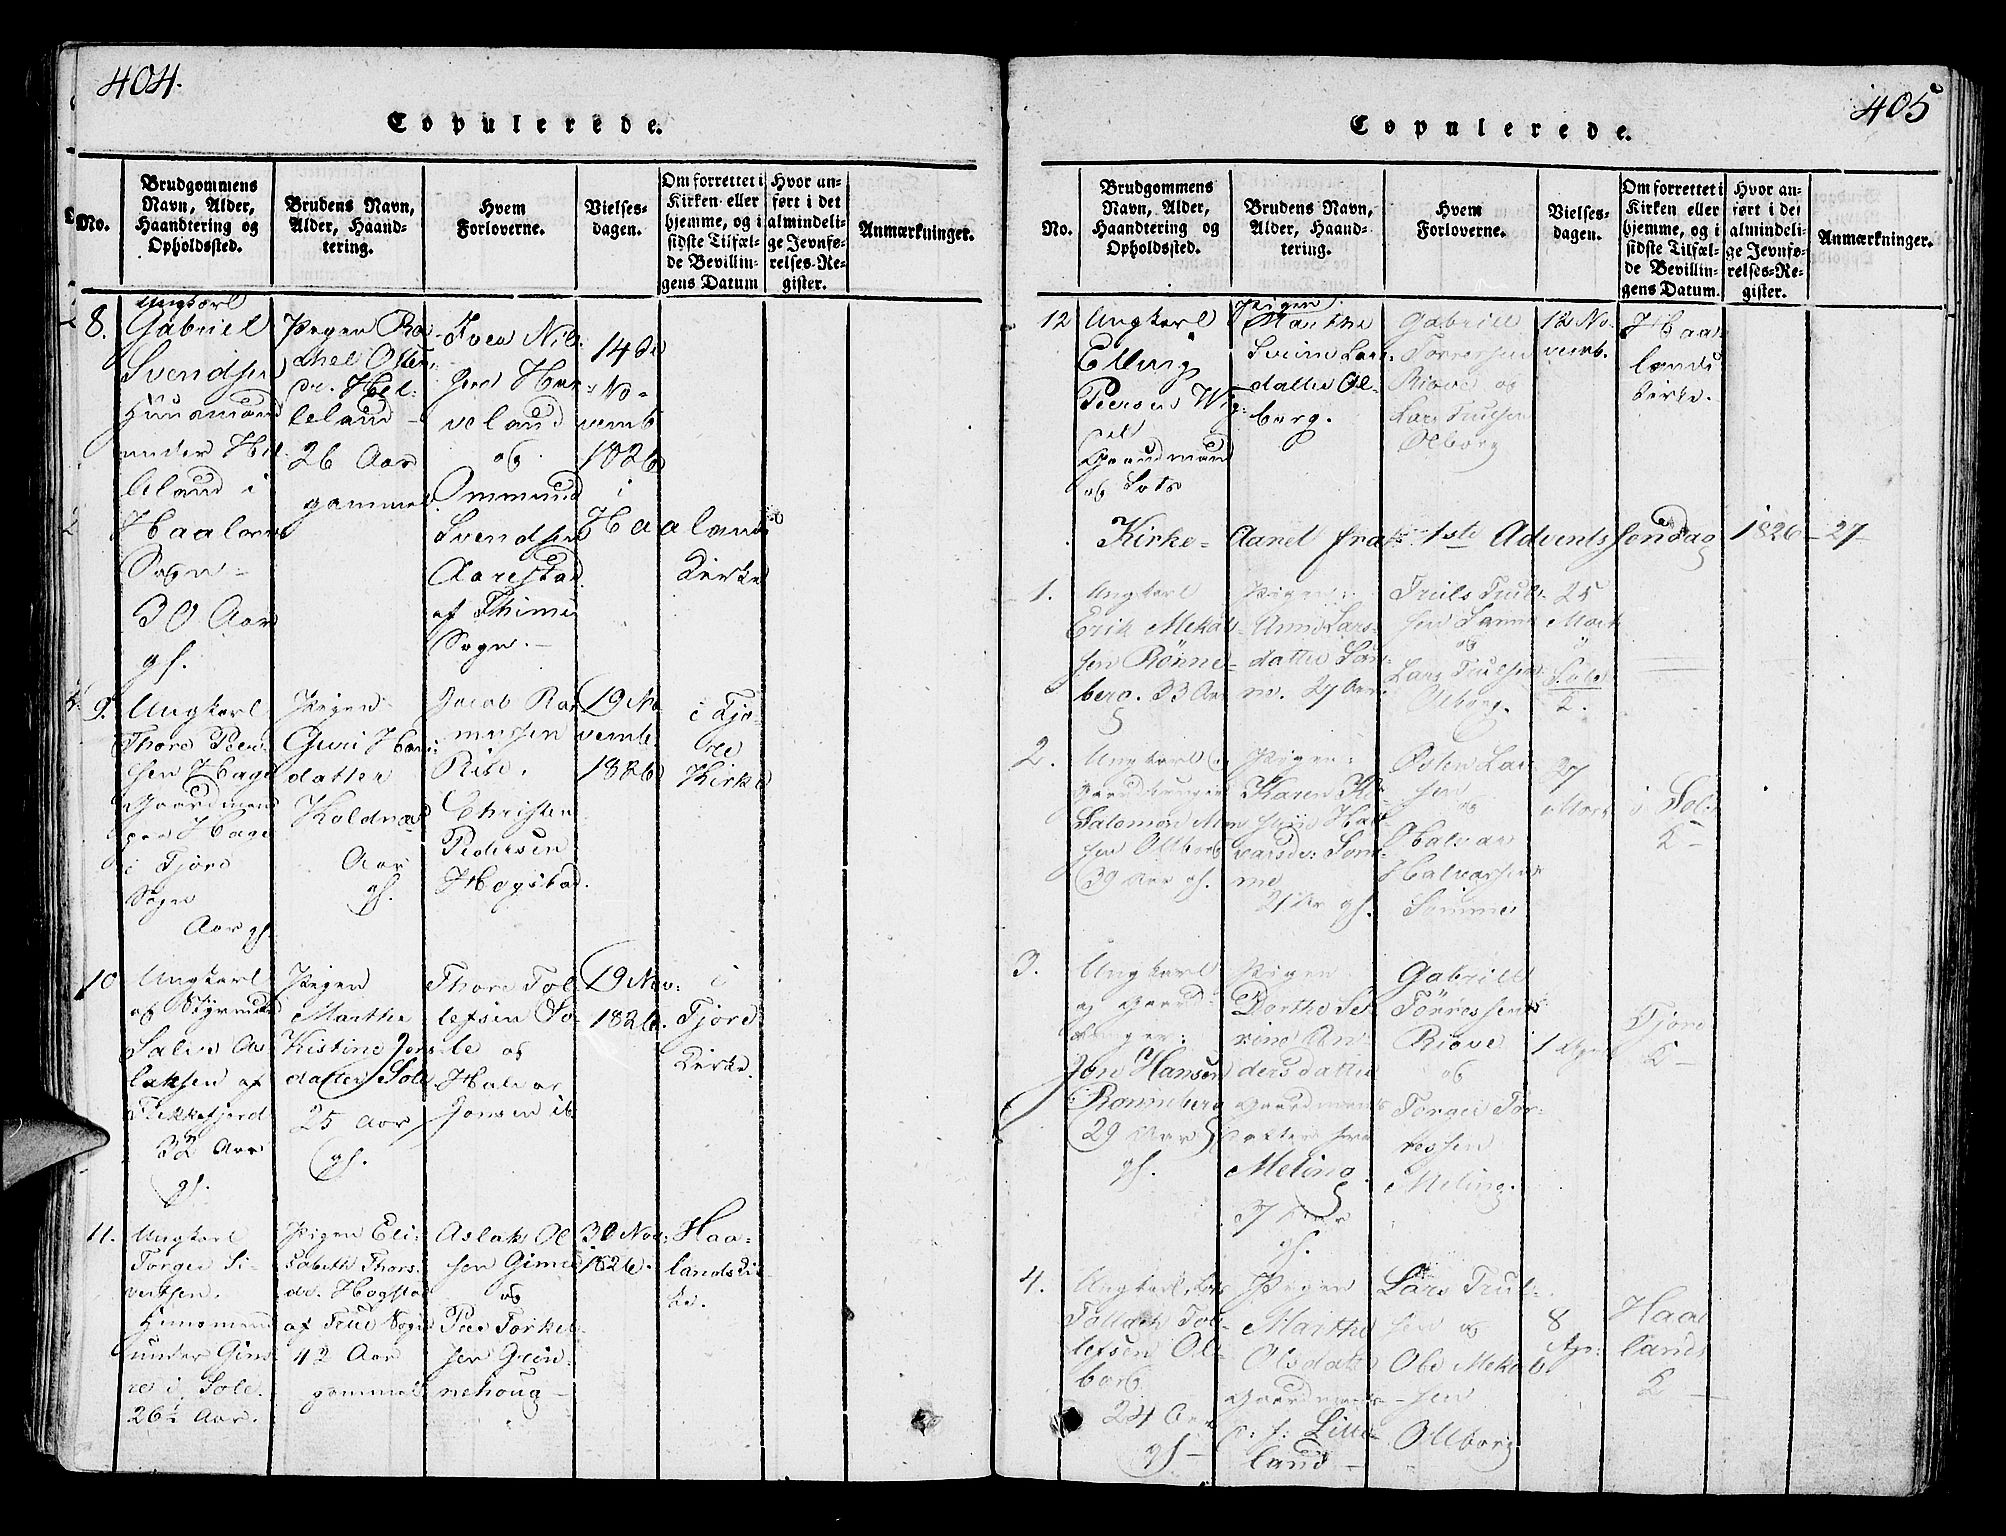 404.
Copulerede.
No.
Brudgommens
Navn, Alder,
Haandtering og
Opholdssted.
Brudens Navn,
Alder, Haand-
tering.
Hvem
Forloverne.
Vielses-
dagen.
Om forrettet i
Kirken eller
hjemme, og i
sidste Tilfæl-
de Bevillin-
gens Datum
Hvor an-
ført i det
almindeli-
ge Jevnfø-
relses-Re-
gister.
Anmærkninger.
8.
Ungkarl
Gabriel
Svendsen
Huusmand
under Hel-
leland i
Haaland
Sogn -
30 Aar
gl.
Pigen Ra-
chel Osten
dr. Hel-
leland -
26 Aar
gammel
Sven Nils
Har-
veland
og
Ommund
Svendsen
Aarestad
af Thime
Sogn. -
14de
No-
vemb
1826
i
Haalands
Kirke
9.
Ungkarl
Thore Peer-
sen Hage
Gaardmand
paa Hage
i Tjora
Sogn
Aar gl.
Pigen
Guri
datter
Koldnæs
Aar
gl.
Jacob Ras-
mussen
Risa.
Christen
Pedersen
Hogstad.
19 No
vemb.
1826
i Tjo-
re
Kirke
10
Ungkarl
og Styrmand
Salve As-
laksen af
Flekkefjord
32 Aar
gl.
Pigen
Marthe
Kistine Jons
datter Sole
25 Aar
gl.
Thore Tol
lefsen So-
le og
Halvor
Jonsen ib
19 Nov:
1826.
i
Tjore
Kirke.
11.
Ungkarl
Torger Si-
vertsen.
Huusmand
under Gim-
re i Sole.
26½ Aar.
Pigen Eli-
sabeth Thors-
dr. Hogstad
af Sogn
42 Aar
gammel
Aslak Ol
sen Gimre
og
Peer Torkel-
sen Grin-
nehoug -
30 Nov:
1826.
Haa-
lands Kir-
ke.
405
Copulerede.
No.
Brudgommens
Navn, Alder,
Haandtering og
Opholdssted.
Brudens Navn,
Alder, Haand-
tering.
Hvem
Forloverne.
Vielses-
dagen.
Om forrettet i
Kirken eller
hjemme, og i
sidste Tilfæl-
de Bevillin-
gens Datum.
Hvor an-
ført i det
almindeli-
ge Jevnfø-
relses-Re-
gister.
Anmærkninger.
12
Ungkarl
Elling
Peersen Wig-
Gaardmand
og Lots
Pigen
Marthe
Lars
datter Ol-
berg.
Gabriell
Torresen
Riove og
Lars Trulsen
Olborg
12 No.
vemb.
Haa
lands
Kirke.
Kirke-Aaret fra 1ste Advents Søndag 1826-27
1.
Ungkarl
Erik Mekals-
sen Rønne-
berg. 33 Aar
Pigen:
Anne Lars-
datter Søm-
me. 27 Aar
Truls Trul-
sen Sømme
og
Lars Trulsen
Olborg.
25
Marts
i
Sole
K.
2.
Ungkarl
Gaardbruger
Salomon Mon
sen Ollborg
39 Aar gl.
Pigen:
Karen Ki-
Hal
vorsdr: Søm-
me
21 Aar gl.
Osten Lar-
sen
og
Halvor
Halvorsen
Sømme
27
Marts
i Sole
K -
3.
Ungkarl
og Gaard-
bruger:
Jon Hansen
Rønneberg
29 Aar
gl.
Pigen
Dorthe Se-
rine An-
dersdatter
Gaardmands
datter fra
Meling
37 Aar
gl.
Gabriell
Tørressen
Riøve
og
Torger Tor-
ressen
Meling.
1 April
Tjora
K -
4.
Ungkarl, Lots
Tollak Tol-
lefsen Ol-
borg
24 Aar
gl -
Pigen
Marthe
Olsdatter
Gaardmands-
d: f: Lille-
land -
Lars Trul-
sen og
Ole Mekal-
sen
Ollborg
8
Apr:
Haa
lands
K -